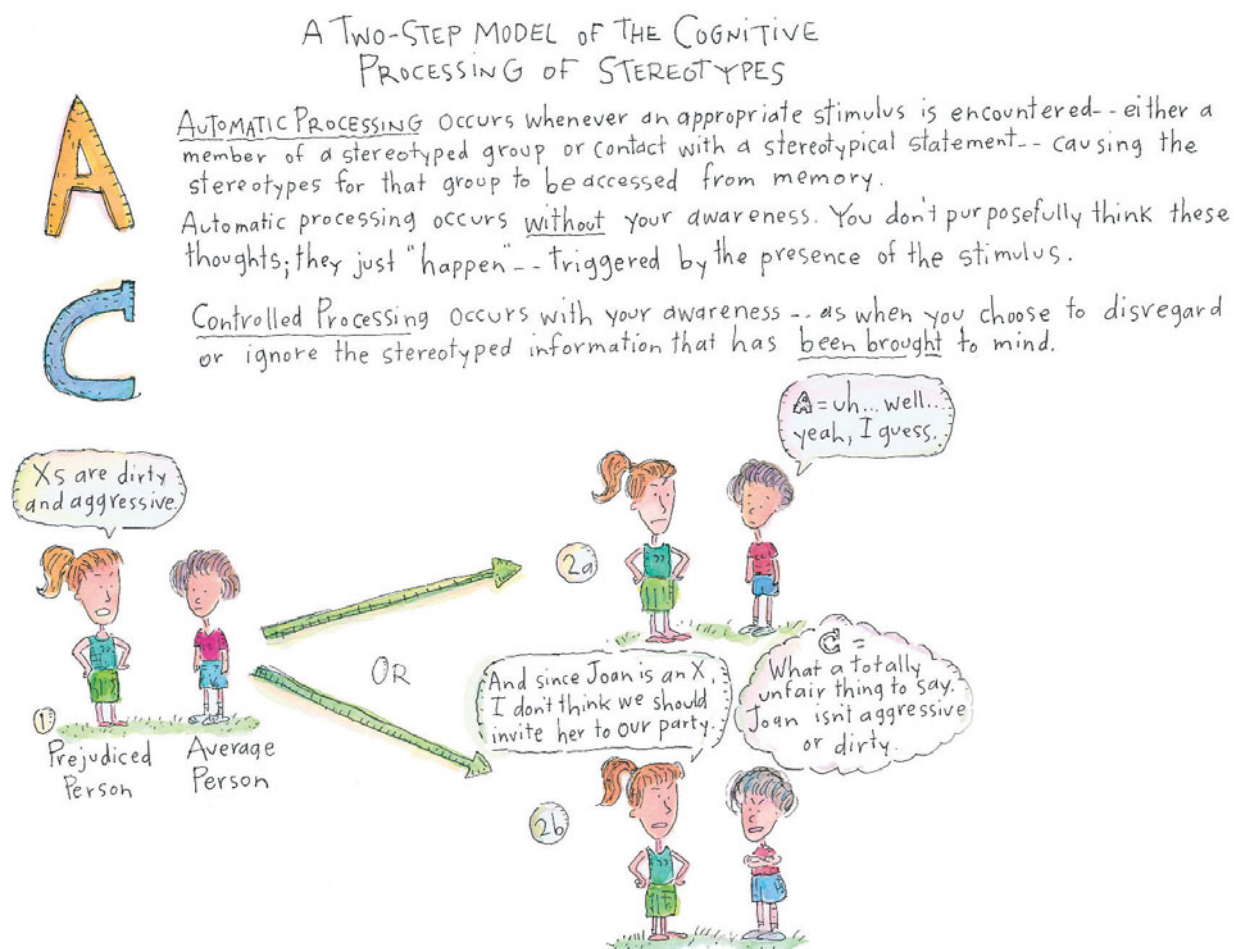 A TWO-STEP MODEL OF THE COGNITIVE
PROCESSING OF STEREOTYPES
A
AUTOMATIC PROCESSING occurs whenever an appropriate stimulus is encountered-- either a
member of a stereotyped group or contact with a stereotypical statement-- causing the
stereotypes for that group to be accessed from memory.
Automatic processing occurs without your awareness. You don't purposefully think these
thoughts; they just "happen"-- triggered by the presence of the stimulus.
C
Controlled Processing occurs with your awareness -- as when you choose to disregard
or ignore the stereotyped information that has been brought to mind.
Xs are dirty
and aggressive.
1
Prejudiced
Person
Average
Person
OR
2a
A = uh... well...
yeah, I guess.
2b
And since Joan is an X,
I don't think we should
invite her to our party.
C =
What a totally
unfair thing to say.
Joan isn't aggressive
or dirty.